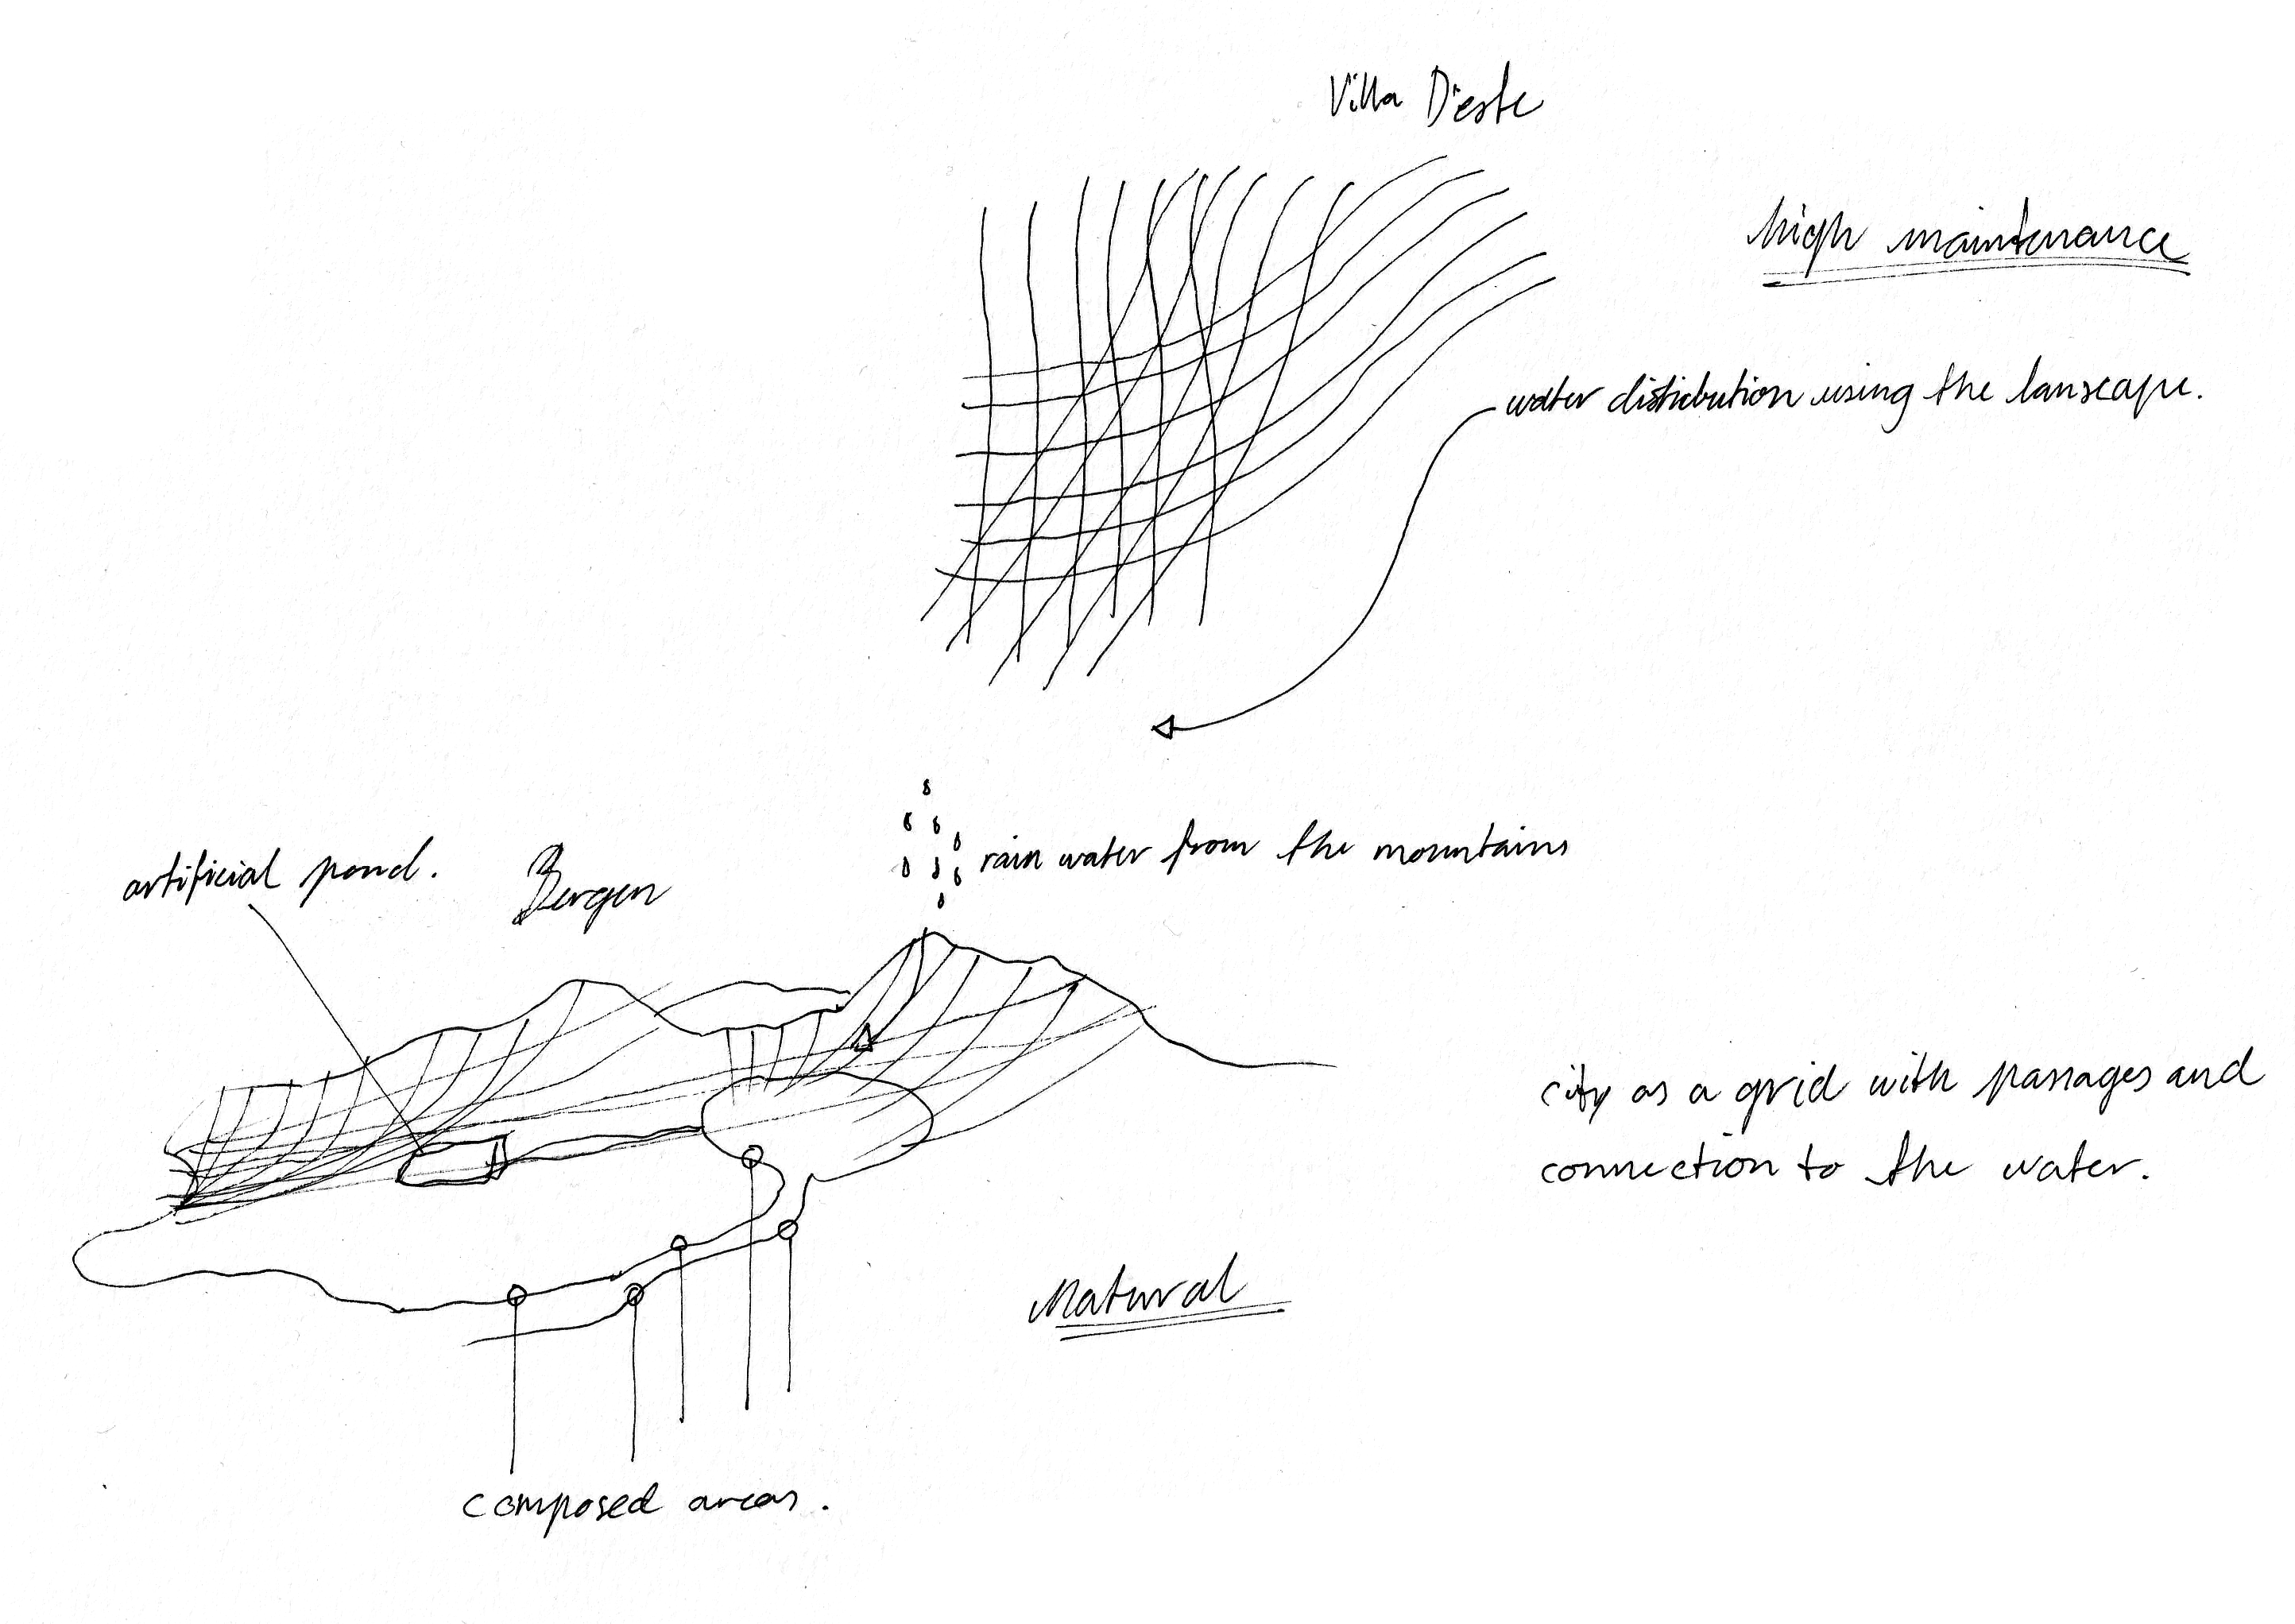 Villa D'este
high maintenance
water distribution using the lanscape.
rain water from the mountains
artificial pond.
Bergen
city as a grid with passages and
connection to the water.
Natural
composed areas.